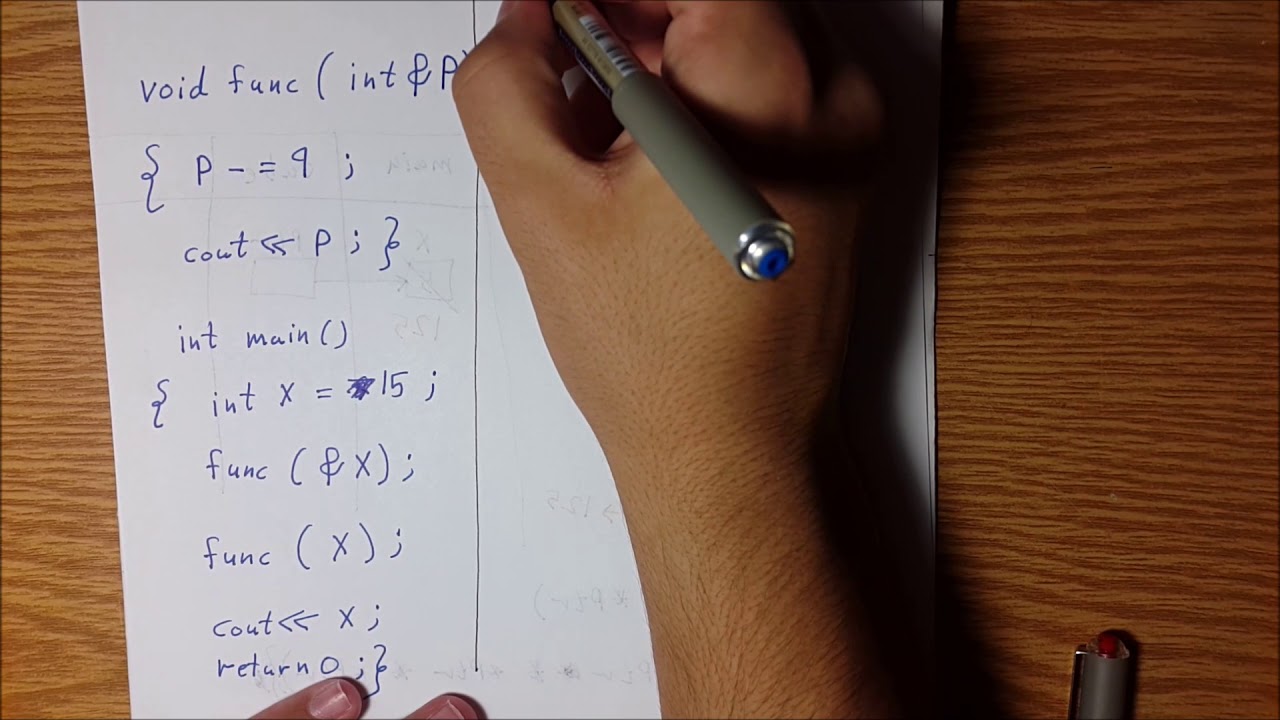 void func ( int & P )
{ P -= 9 ;
cout << P ; }
int main ()
{ int X = 15 ;
func ( & X ) ;
func ( X ) ;
cout << X ;
return 0 ; }